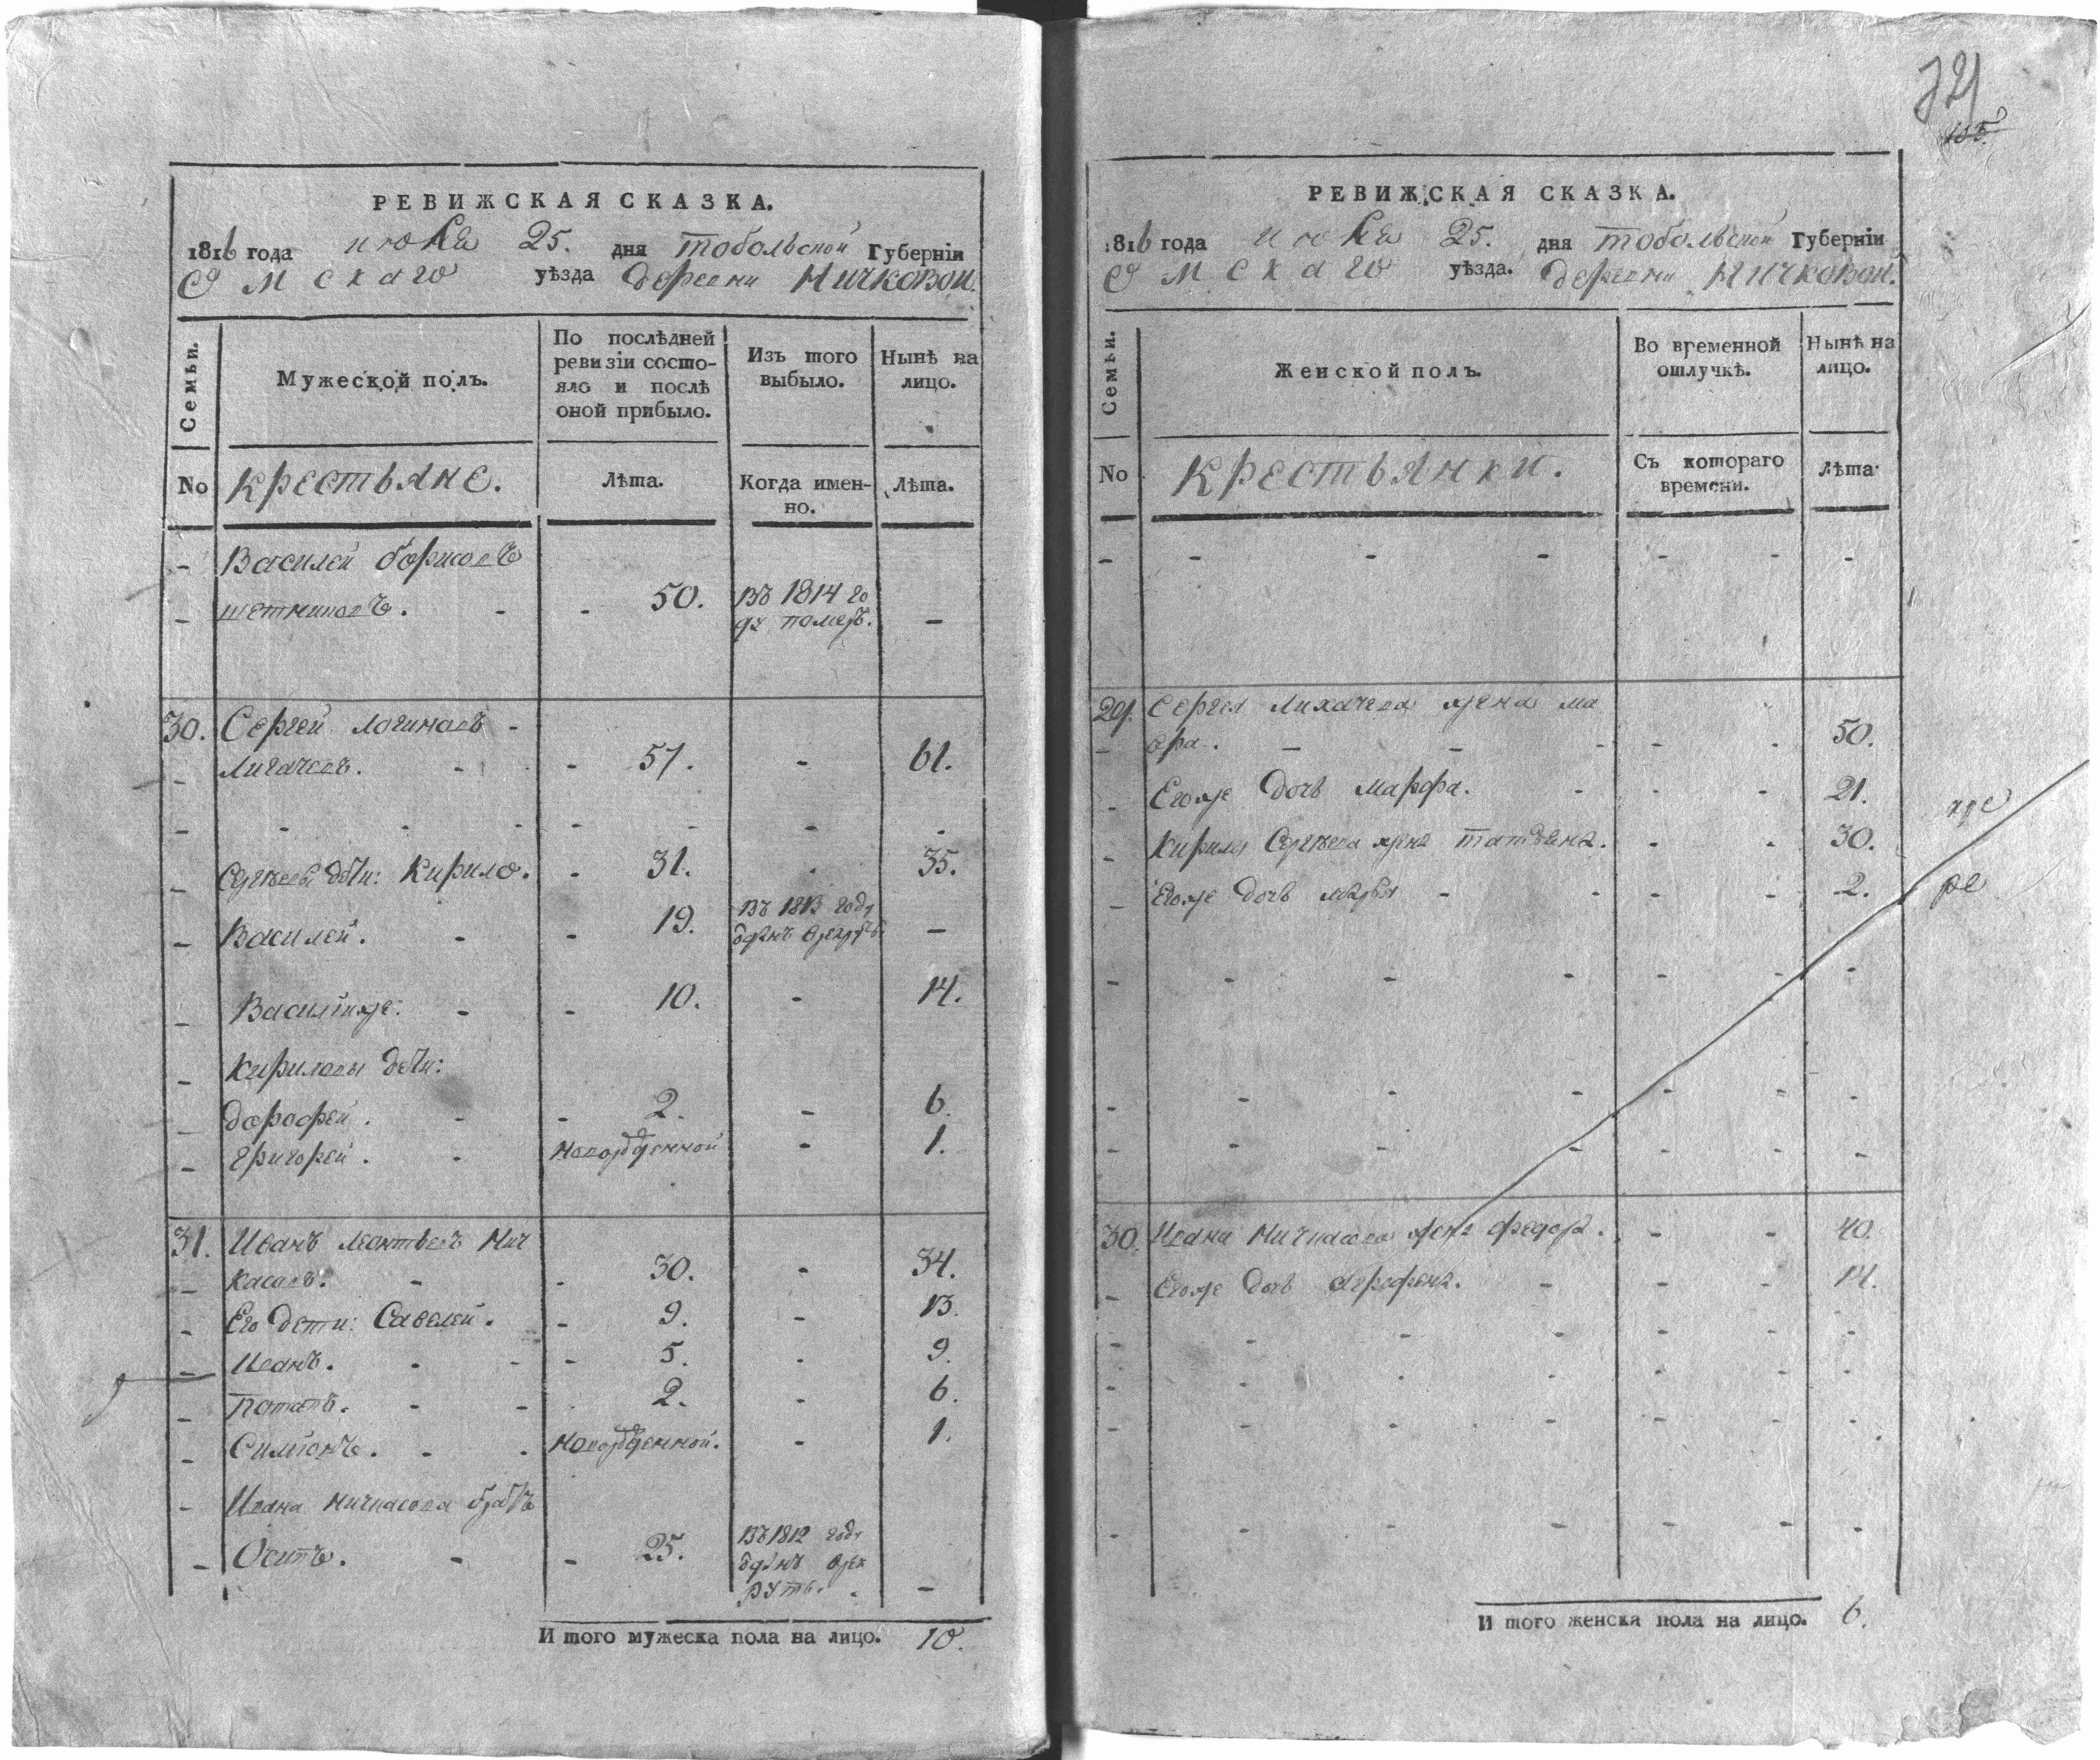 721
105
РЕВИЖСКАЯ СКАЗКА.
1816 года июля 25. дня тобольской Губерніи
Омскаго уѣзда деревни Ничковой.
Семьи.
Мужеской полъ.
По послѣдней ревизіи состояло и послѣ оной прибыло.
Изъ того выбыло.
Нынѣ на лицо.
No
крестьяне.
Лѣта.
Когда именно.
Лѣта.
Василей борисовъ
щетниковъ. 50. въ 1814 го
ду померъ. -
30. Сергей логиновъ
Лигачевъ. 57. - 61.
Сергѣевы дѣти: Кирило. 31. - 35.
Василей. 19. въ 1813 году
отданъ в рекруты -
Василийже: 10. - 14.
Кириловы дѣти:
дорофей. 2. - 6.
григорей. новорожденной - 1.
31. Иванъ леонтьевъ Нич
касовъ. 30. - 34.
Его дети: Савелей. 9. - 13.
Иванъ. 5. - 9.
потапъ. 2. - 6.
Симіонъ. новорожденной. - 1.
Ивана ничкасова братъ
Осипъ. 25. въ 1812 году
отданъ врек
руты. -
И того мужеска пола на лицо. 10.
РЕВИЖСКАЯ СКАЗКА.
1816 года июля 25. дня тобольской Губерніи
Омскаго уѣзда. деревни Ничковой.
Семьи.
Женской полъ.
Во временной отлучкѣ.
Нынѣ на лицо.
No
крестьянки.
Съ котораго времени.
Лѣта
29. Сергея Лихачева жена ма
вра. 50.
Егоже дочь марфа. 21.
Кирила Сергѣева жена татьяна. 30.
Егоже дочь марья 2.
30. Ивана Ничкасова жена федора. 40.
Егоже дочь 14.
И того женска пола на лицо. 6.